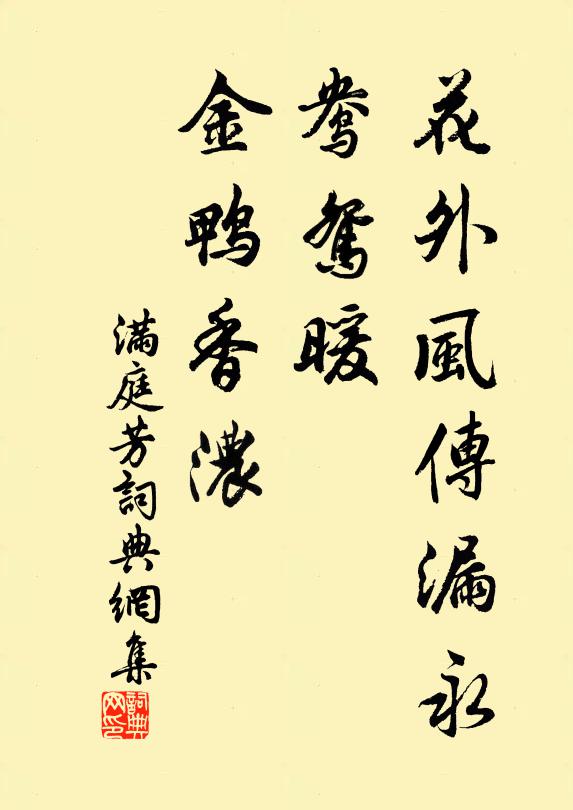 花外風傳漏永
鴛鴦暖
金鴨香濃
滿庭芳詞典網集
詞典网印